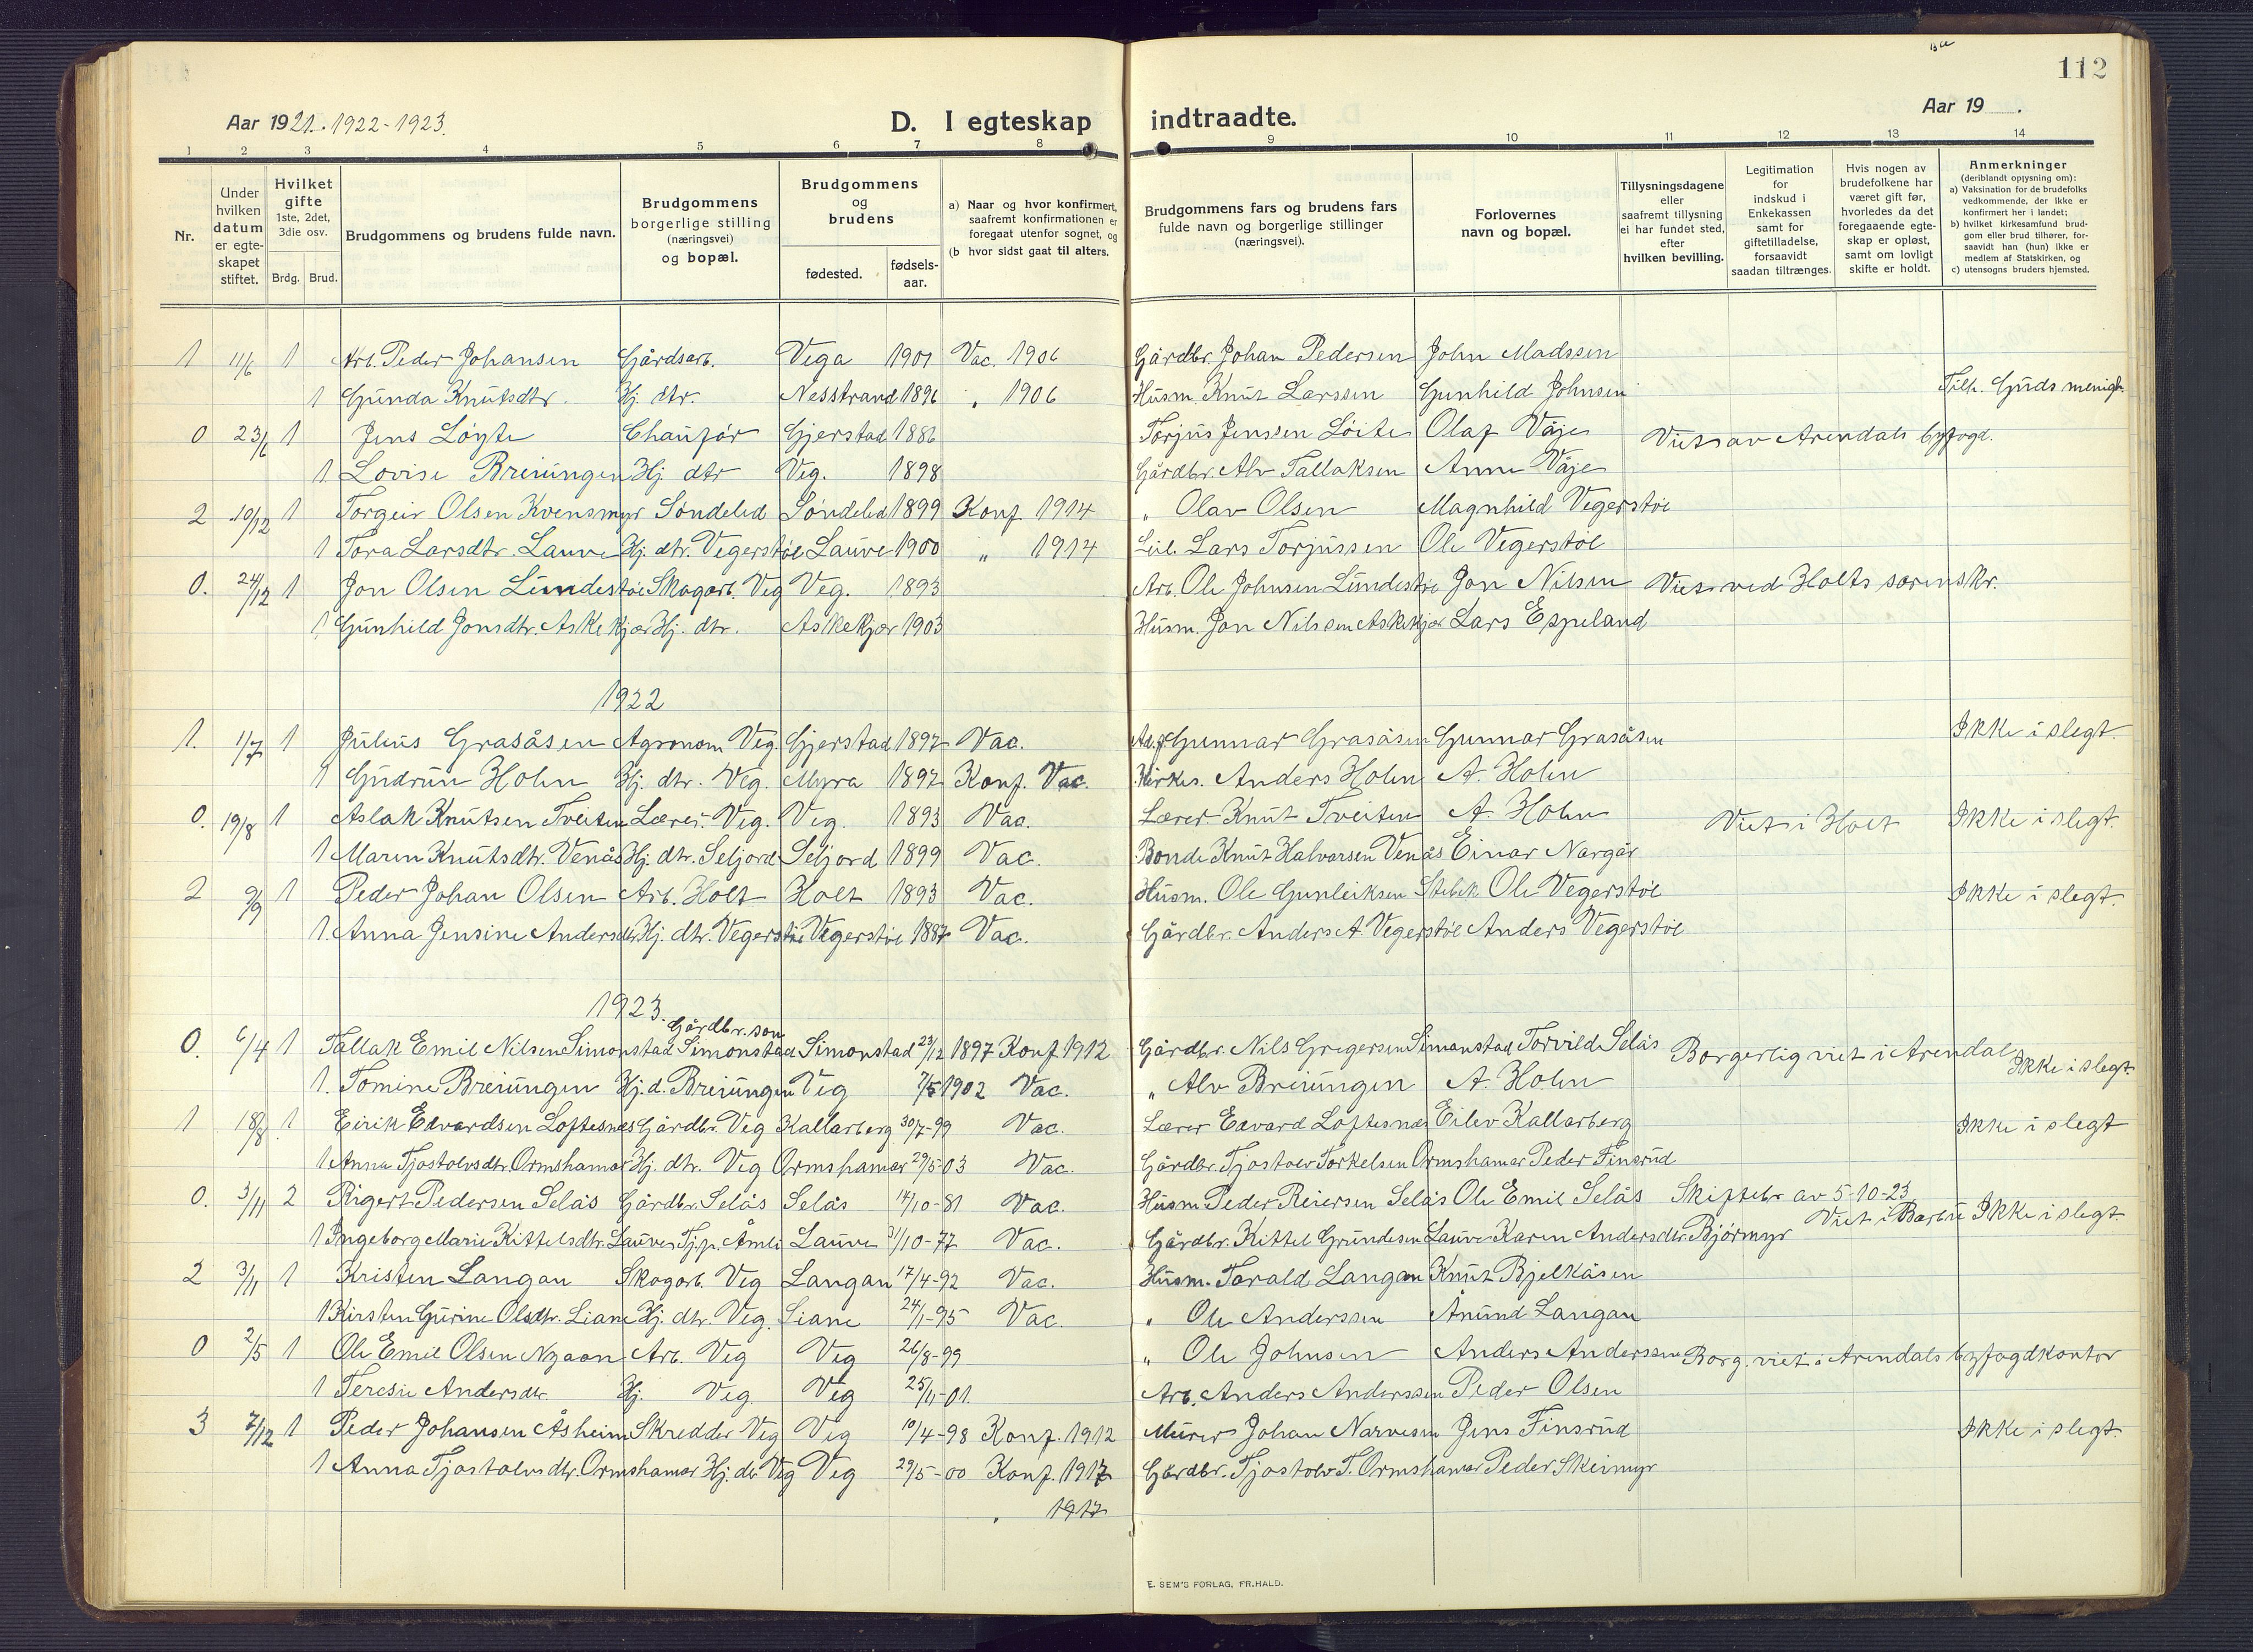 112
Aar 1921. 1922-1923.
D. I egteskap indtraadte.
Aar 19 .
1 2 3 4 5 6 7 8 9 10 11 12 13 14
Nr.
Under hvilken datum er egteskapet stiftet.
Hvilket gifte 1ste, 2det, 3die osv.
Brdg. Brud.
Brudgommens og brudens fulde navn.
Brudgommens borgerlige stilling (næringsvei) og bopæl.
Brudgommens og brudens
fødested. fødselsaar.
a) Naar og hvor konfirmert, saafremt konfirmationen er foregaat utenfor sognet, og
(b hvor sidst gaat til alters.
Brudgommens fars og brudens fars fulde navn og borgerlige stillinger (næringsvei).
Forlovernes navn og bopæl.
Tillysningsdagene eller saafremt tillysning ei har fundet sted, efter hvilken bevilling.
Legitimation for indskud i Enkekassen samt for giftetilladelse, forsaavidt saadan tiltrænges.
Hvis nogen av brudefolkene har været gift før, hvorledes da det foregaaende egteskap er opløst, samt om lovligt skifte er holdt.
Anmerkninger (deriblandt opiysning om):
a) Vaksination for de brudefolks vedkommende, der ikke er konfirmert her i landet;
b) hvilket kirkesamfund brudgom eller brud tilhører, forsaavidt han (hun) ikke er medlem af Statskirken, og
c) utensogns bruders hjemsted.
1 11/6 1 Arb. Peder Johansen Gårdsarb. Vega 1901 Vac. 1906 Gårdbr. Johan Pedersen John Madssen
1 Gunda Knutsdtr. Hj. dtr. Nesstrand 1896 " 1906 Husm. Knut Larssen Gunhild Johnsen Tilh. Guds menigh.
0 23/6 1 Jens Løyte Chaufør Gjerstad 1886 Torjus Jenssen Løite Olaf Våje Viet av Arendals byfogd.
1 Lovise Breiungen Hj. dtr Veg. 1898 Gårdbr. Alv Tallaksen Anne Våje
2 10/12 1 Torgeir Olsen Kvensmyr Søndeled Søndeled 1899 Konf 1914 " Olav Olsen Magnhild Vegerstøl
1 Tora Larsdtr. Lauve Hj. dtr. Vegerstøl Lauve 1900 " 1914 Leil. Lars Torjussen Ole Vegerstøl
0. 24/12 1 Jon Olsen Lundestøl Skogarb. Veg Veg. 1893 Arb. Ole Johnsen Lundestøl Jon Nilsen Viet ved Holts sorenskr.
1 Gunhild Jonsdtr. Askekjær Hj. dtr. Askekjær 1903 Husm. Jon Nilssen Askekjær Lars Espeland
1922
1. 1/7 1 Julius Grasåsen Agronom Veg. Gjerstad 1897 Vac. Gunnar Grasåsen Gunnar Grasåsen Ikke i slegt.
1 Gudrun Holm Hj. dtr. Veg. Myra 1897 Konf. Vac. Kirkes. Anders Holm A. Holm
0. 19/8 1 Aslak Knutsen Tveiten Lærer. Veg. Veg. 1893 Vac. Lærer Knut Tveiten A. Holm Viet i Holt Ikke i slegt.
1 Maren Knutsdtr. Venås Hj. dtr. Seljord Seljord 1899 Vac. Bonde Knut Halvorsen Venås Einar Norgår
2 9/9 1 Peder Johan Olsen Arb. Holt Holt 1893 Vac. Husm. Ole Gunleiksen Stebek Ole Vegerstøl Ikke i slegt.
1. Anna Jensine Andersdtr. Hj. dtr. Vegerstøl Vegerstøl 1887 Vac. Gårdbr. Anders A. Vegerstøl Anders Vegerstøl
1923.
Gårdbr. søn
0. 6/4 1 Tallak Emil Nilsen Simonstad Simonstad Simonstad 23/12 1897 Konf 1912 Gårdbr. Nils Gregersen Simonstad Torvild Selås Borgerlig viet i Arendal Ikke i slegt.
1. Tomine Breiungen Hj. d. Breiungen Veg 7/5 1902 Vac. " Alv Breiungen A. Holm
1 18/8 1 Eirik Edvardsen Loftesnes Gårdbr. Veg Kallarberg 30/7-99 Vac. Lærer Edvard Loftesnes Eilev Kallarberg Ikke i slegt
1 Anna Tjostolvsdtr. Ormshamar Hj. dtr. Veg Ormshamar 29/5-03 Vac. Gårdbr. Tjostolv Torkelsen Ormshamar Peder Finsrud
0. 3/11 2 Rigert Pedersen Selås Gårdbr. Selås Selås 14/10-81 Vac. Husm Peder Reiersen Selås Ole Emil Selås Skiftebr av 5-10-23
1 Ingeborg Marie Kittelsdtr. Lauve Tj.p. Åmli Lauve 31/10-77 Vac. Gårdbr. Kittel Grundesen Lauve Karen Andersdtr. Bjørmyr Viet i Barbu Ikke i slegt.
2 3/11 1 Kristen Langan Skogarb. Veg Langan 17/4-92 Vac. Husm. Torald Langan Knut Bjelkåsen
1 Kirsten Gurine Olsdtr. Liane Hj. dtr. Veg. Liane 24/1-95 Vac. " Ole Anderssen Ånund Langan
0 2/5 1 Ole Emil Olsen Nygaan Arb. Veg Veg 26/8-99 " Ole Johnsen Anders Anderssen Borg. viet i Arendals byfogdkontor
1 Teresie Andersdtr. Hj. Veg. Veg 25/11-01. Arb. Anders Anderssen Peder Olsen
3 7/12 1 Peder Johansen Åsheim Skredder Veg Veg 10/4-98 Konf. 1912 Murer Johan Narvesen Jens Finsrud Ikke i slegt.
1 Anna Tjostolvsdtr. Ormshamar Hj. dtr Veg Veg 29/5-00 Konf. 1917 Gårdbr. Tjostolv T. Ormshamar Peder Skeimyr
" 1917
E. SEM'S FORLAG, FR.HALD.